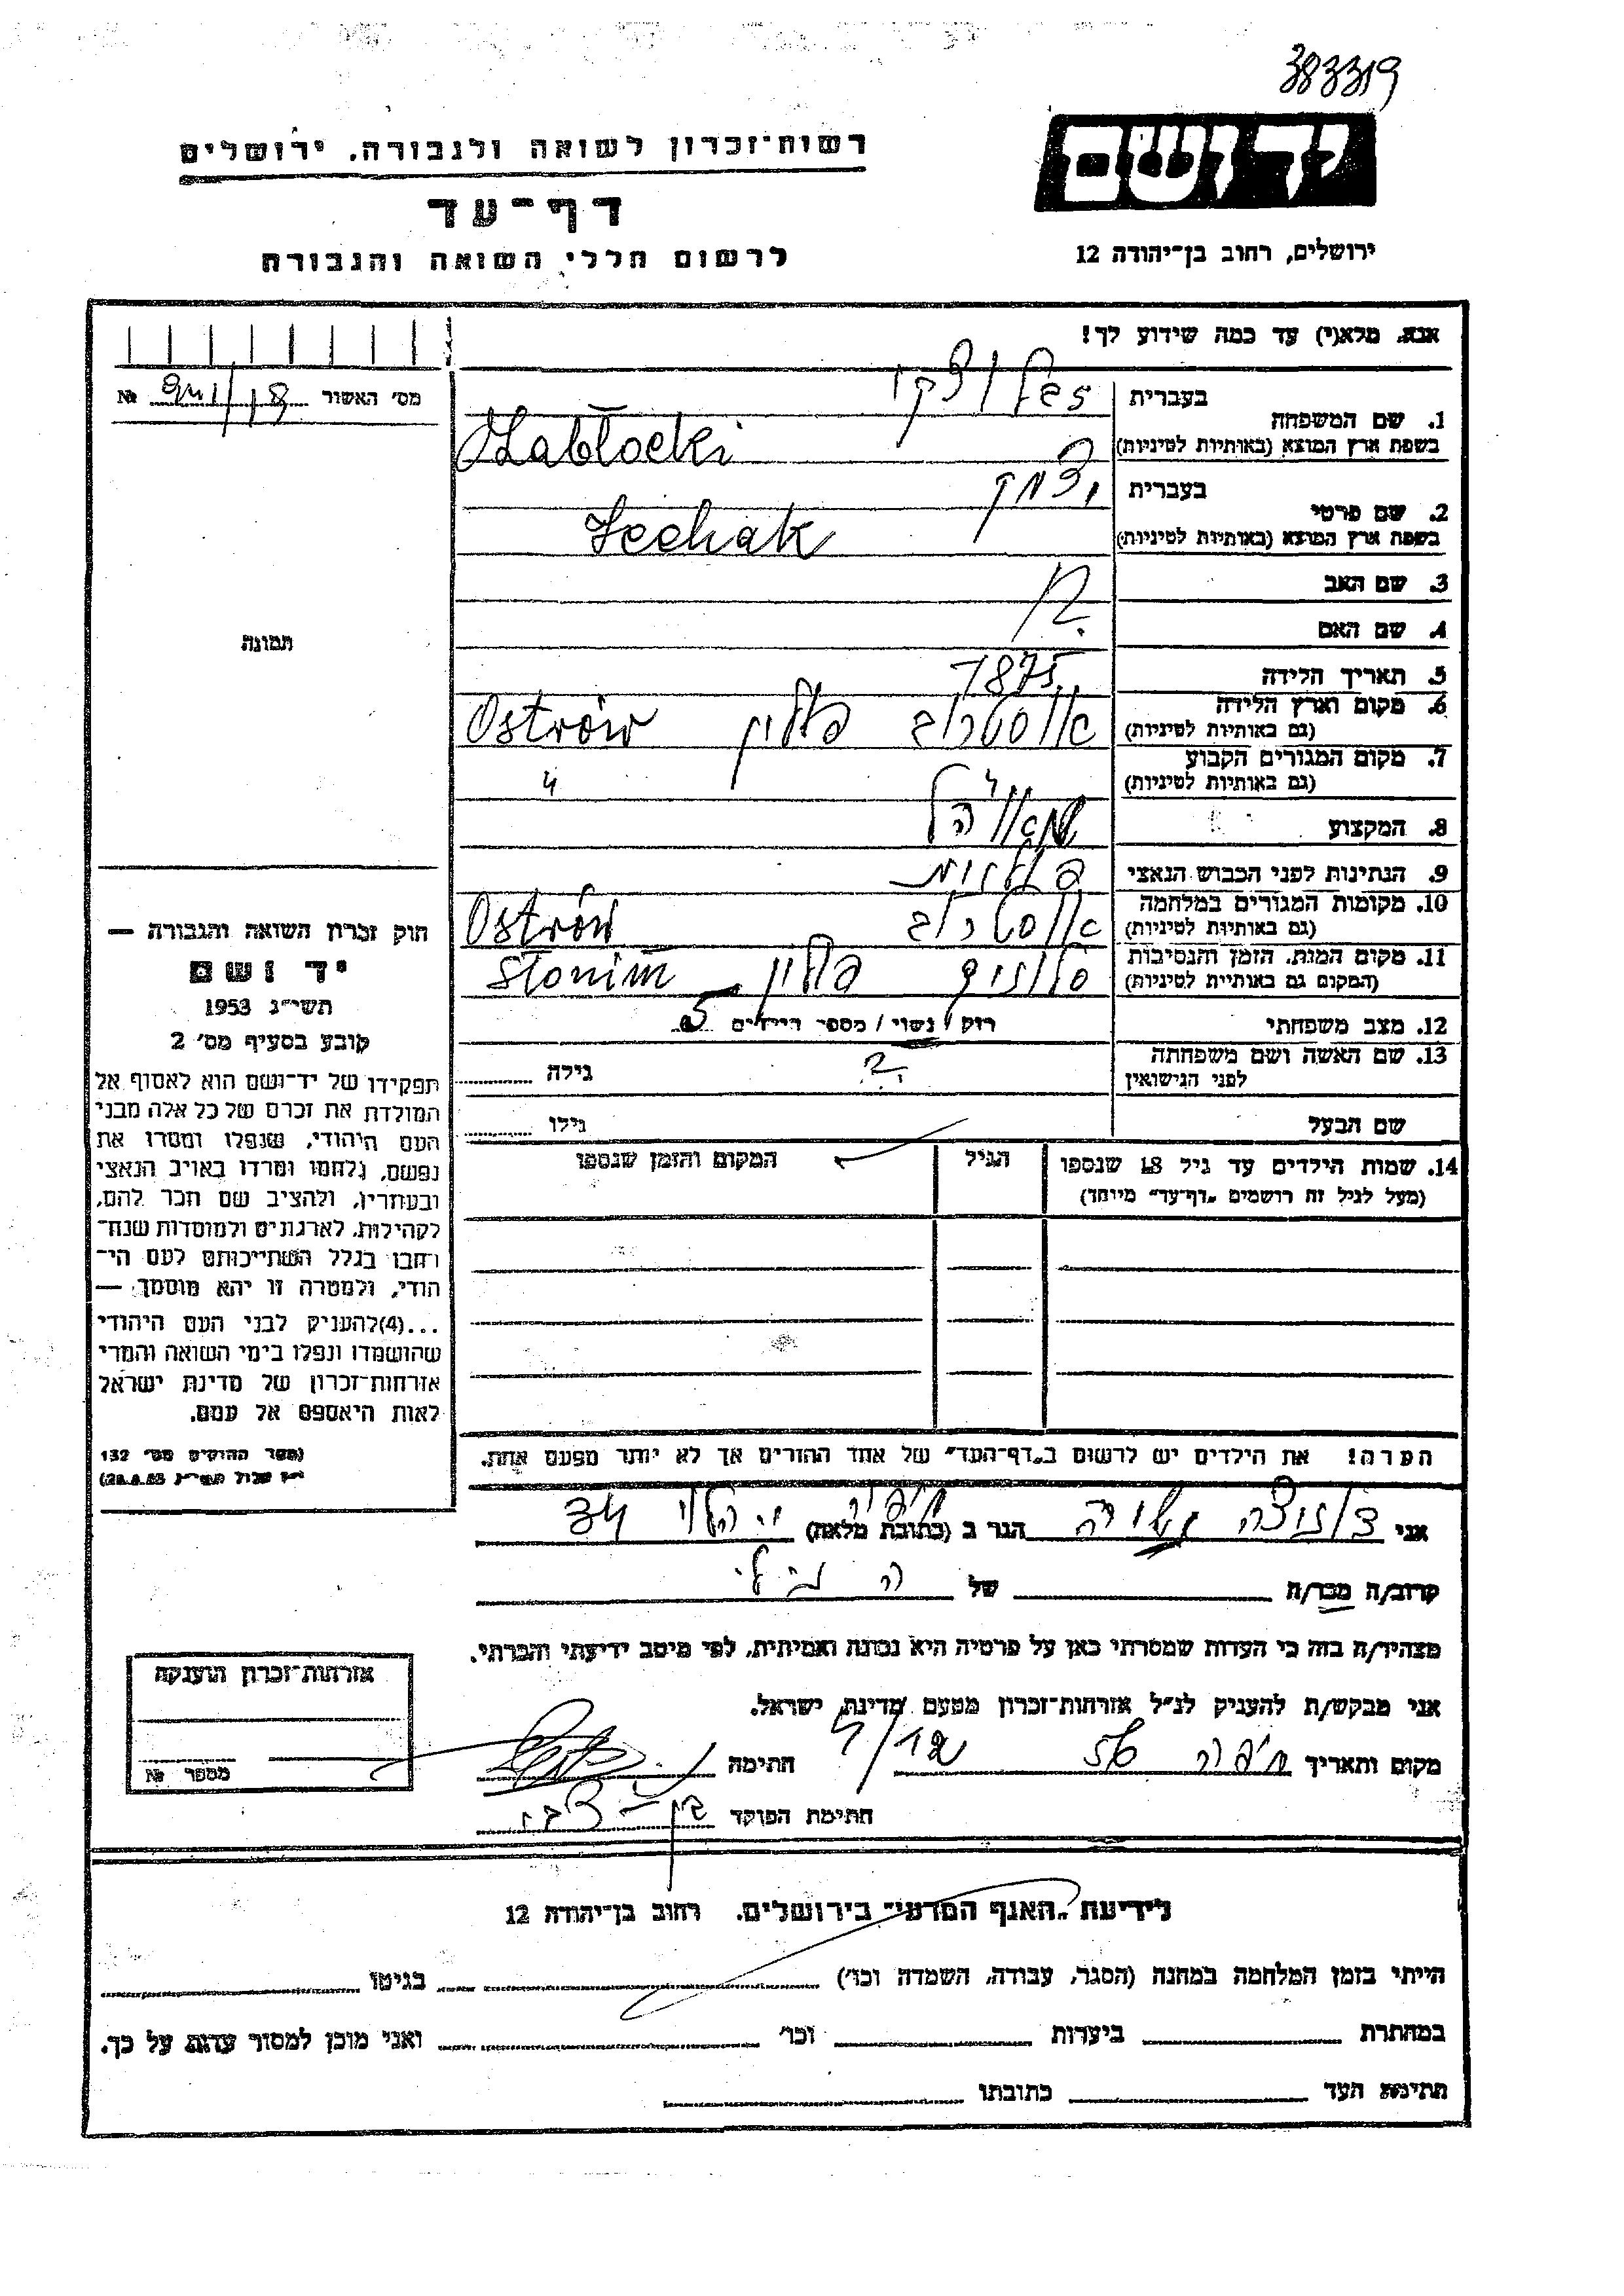 383319
יד ושם
רשות־זכרון לשואה ולגבורה, ירושלים
דף־עד
לרשום חללי השואה והגבורה
ירושלים, רחוב בן־יהודה 12
אנא, מלא(י) עד כמה שידוע לך!
מס׳ האשור №
1. שם המשפחה
בעברית
בשפת ארץ המוצא (באותיות לטיניות) Zabłocki
2. שם פרטי
בעברית יצחק
בשפת ארץ המוצא (באותיות לטיניות) Icchak
3. שם האב ?
4. שם האם
5. תאריך הלידה 1875
6. מקום וארץ הלידה
(גם באותיות לטיניות) אוסטרוב פולין Ostrów
7. מקום המגורים הקבוע
(גם באותיות לטיניות) "
8. המקצוע
9. הנתינות לפני הכבוש הנאצי פולנית
10. מקומות המגורים במלחמה
(גם באותיות לטיניות) אוסטרוב Ostrów
11. מקום המות, הזמן והנסיבות
(המקום גם באותיות לטיניות) סלונים פולין Słonim
12. מצב משפחתי רוק / נשוי / מספר הילדים 5
13. שם האשה ושם משפחתה
לפני הנישואין ? גילה
שם הבעל גילו
14. שמות הילדים עד גיל 18 שנספו
(מעל לגיל זה רושמים „דף־עד” מיוחד)
הגיל
המקום והזמן שנספו
הערה! את הילדים יש לרשום ב„דף־העד” של אחד ההורים אך לא יותר מפעם אחת.
תמונה
חוק זכרון השואה והגבורה —
יד ושם
תשי״ג 1953
קובע בסעיף מס׳ 2
תפקידו של יד־ושם הוא לאסוף אל
המולדת את זכרם של כל אלה מבני
העם היהודי, שנפלו ומסרו את
נפשם, נלחמו ומרדו באויב הנאצי
ובעוזריו, ולהציב שם וזכר להם,
לקהילות, לארגונים ולמוסדות שנח־
רחבו בגלל השתייכותם לעם הי־
הודי, ולמטרה זו יהא מוסמך —
...(4)להעניק לבני העם היהודי
שהושמדו ונפלו בימי השואה והמרי
אזרחות־זכרון של מדינת ישראל
לאות היאספם אל עמם.
(ספר החוקים מס׳ 132
אני הגר ב (כתובת מלאה) חיפה 34
קרוב/ה מכר/ה של
מצהיר/ה בזה כי העדות שמסרתי כאן על פרטיה היא נכונה ואמיתית, לפי מיטב ידיעתי והכרתי.
אני מבקש/ת להעניק לנ״ל אזרחות־זכרון מטעם מדינת ישראל.
מקום ותאריך חיפה חתימה
חתימת הפוקד
אזרחות־זכרון הוענקה
מספר №
לידיעת „האגף המדעי” בירושלים, רחוב בן־יהודה 12
הייתי בזמן המלחמה במחנה (הסגר, עבודה, השמדה וכו׳) בגיטו
במחתרת ביערות וכו׳ ואני מוכן למסור עדות על כך.
חתימת העד כתובתו